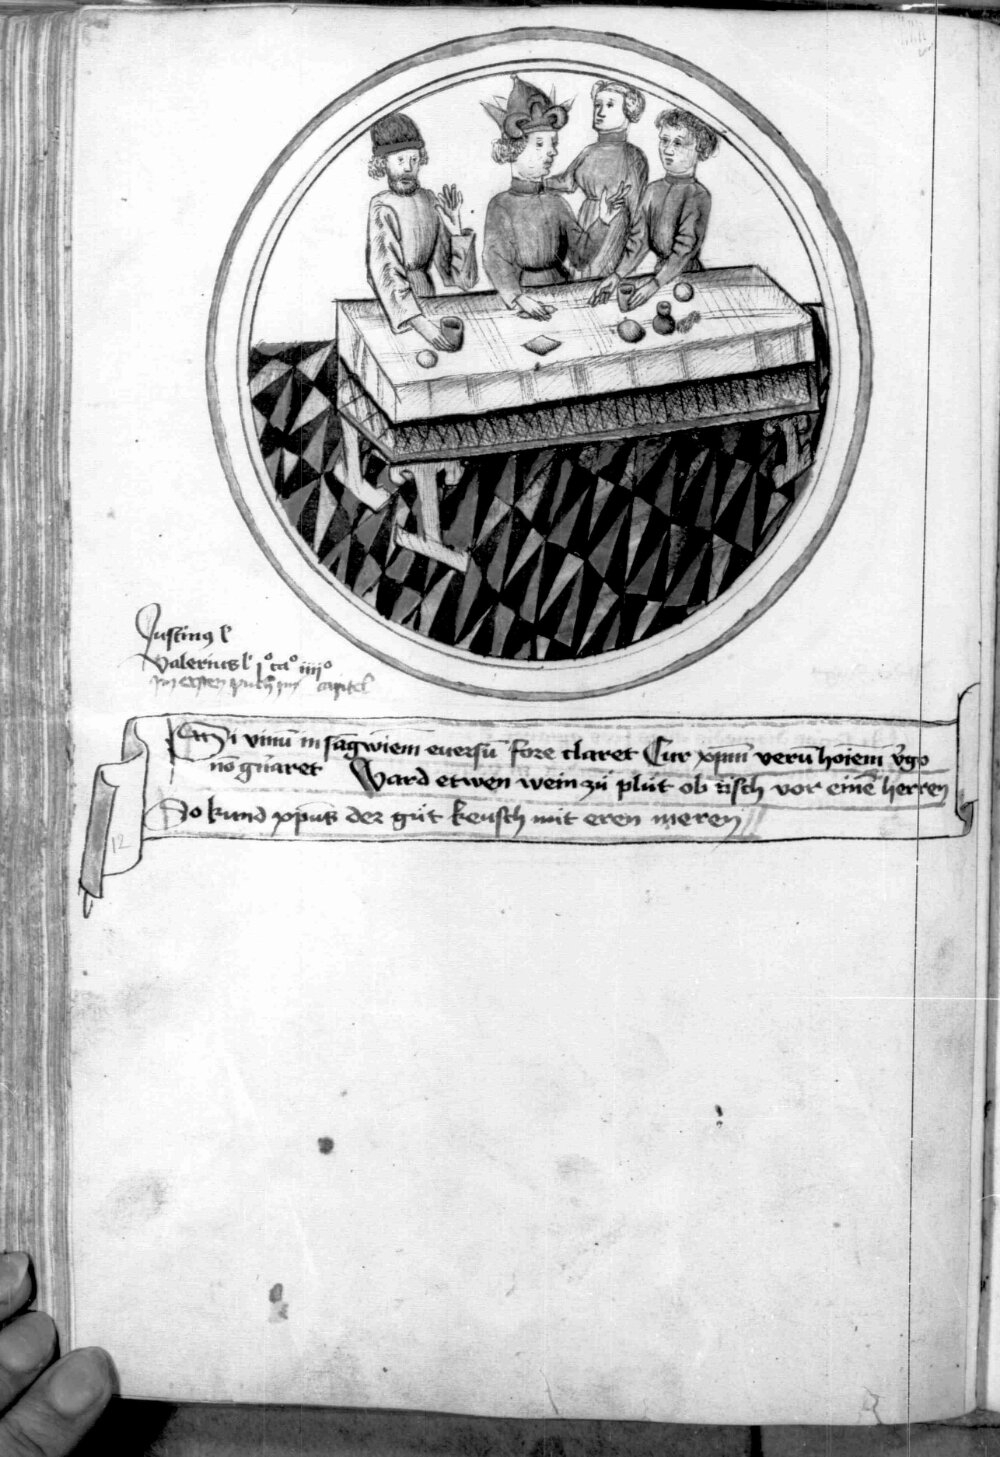 Justinꝯ l'
Valerius l' jº caº iiijº
jm ersten puch jm capitel
Si vinū in sāgwiem euersū fore claret Cur xpm̄ verū hōiem v'go
nō gn̄aret Ward etwen wein zů plůt ob tisch vor eine͞ herren
Do kund xpm̄ der gůt keusch mit eren meren
12